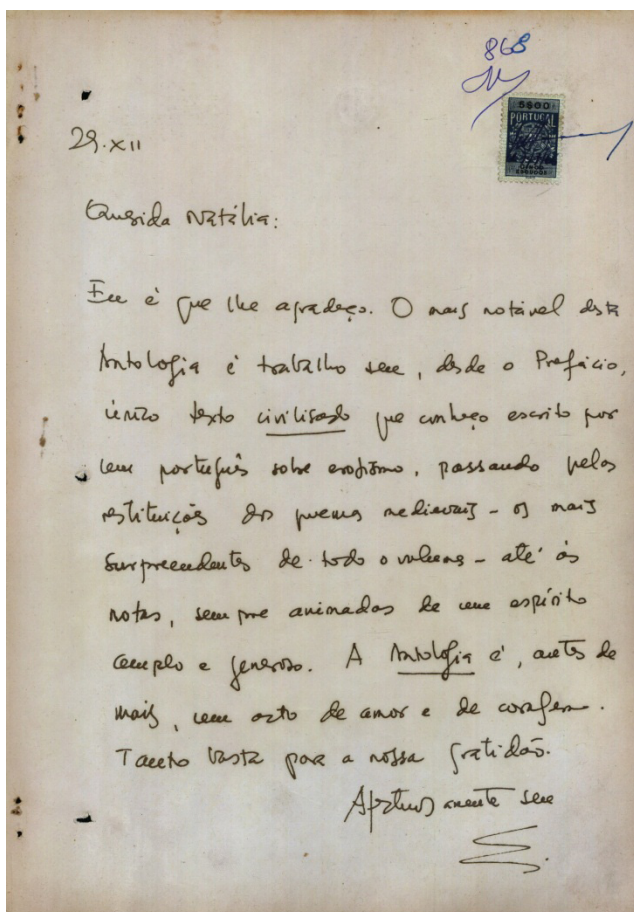 868
5$00
PORTUGAL
29.XII
Querida Natália:
Eu é que lhe agradeço. O mais notável desta
Antologia é trabalho seu, desde o Prefácio,
único texto civilisado que conheço escrito por
um português sobre erotismo, passando pelas
restituições dos poemas medievais - os mais
surpreendentes de todo o volume - até às
notas, sempre animadas de um espírito
amplo e generoso. A Antologia é, antes de
mais, um acto de amor e de coragem.
Tanto basta para a nossa gratidão.
Afectuosamente seu